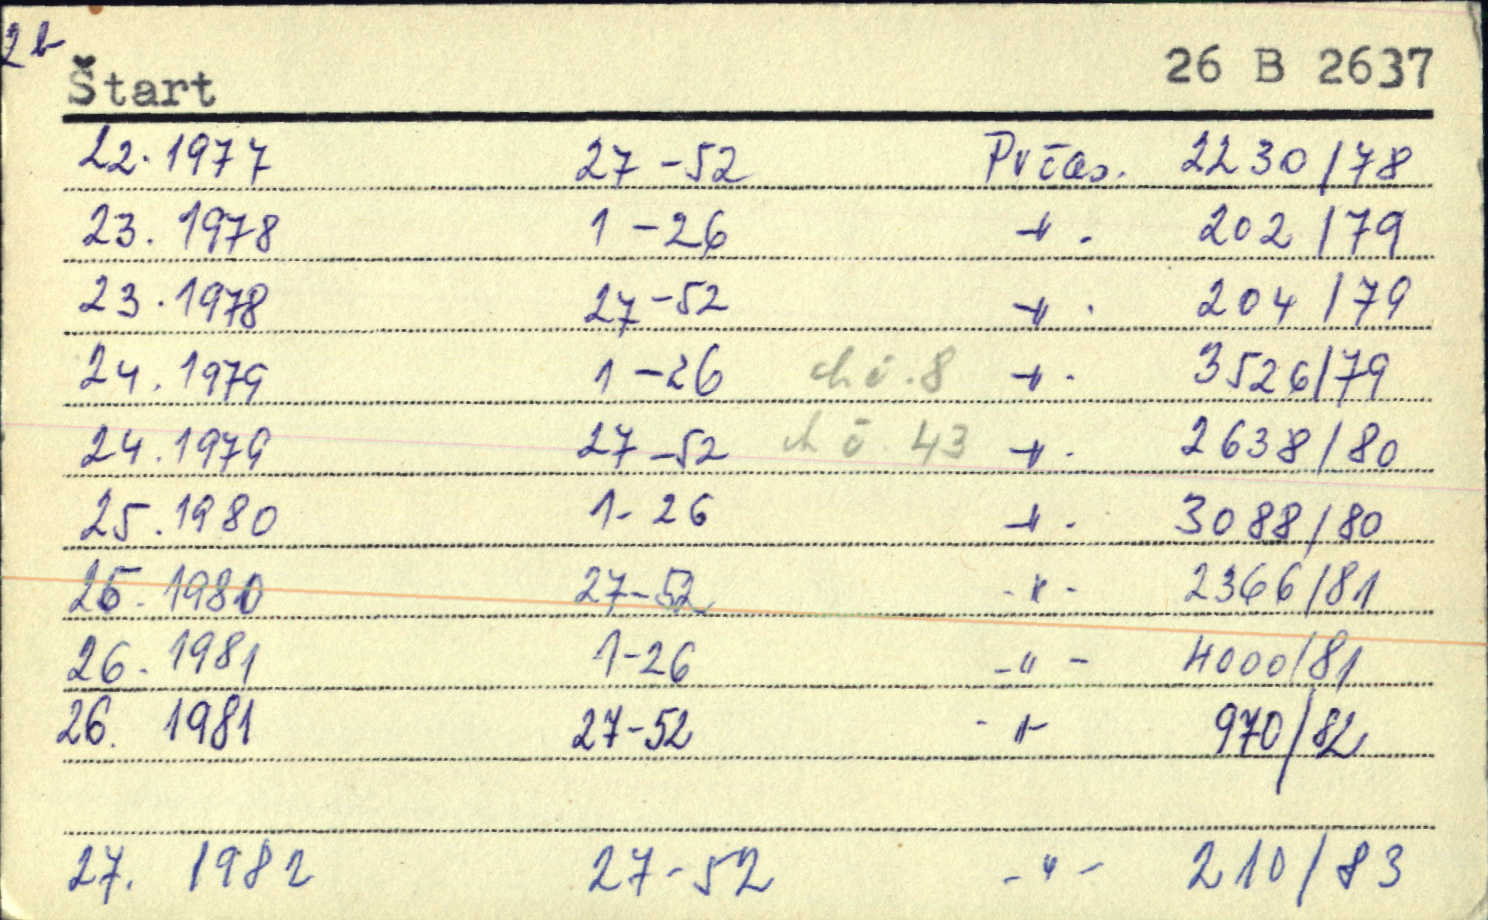 2b
Štart 26 B 2637
22. 1977 27-52 Pvčas. 2230/78
23. 1978 1-26 -"- 202/79
23. 1978 27-52 -"- 204/79
24. 1979 1-26 ch č. 8 -"- 3526/79
24. 1979 27-52 ch č. 43 -"- 2638/80
25. 1980 1-26 -"- 3088/80
25. 1980 27-52 -"- 2366/81
26. 1981 1-26 -"- 4000/81
26. 1981 27-52 -"- 970/82
27. 1982 27-52 -"- 210/83